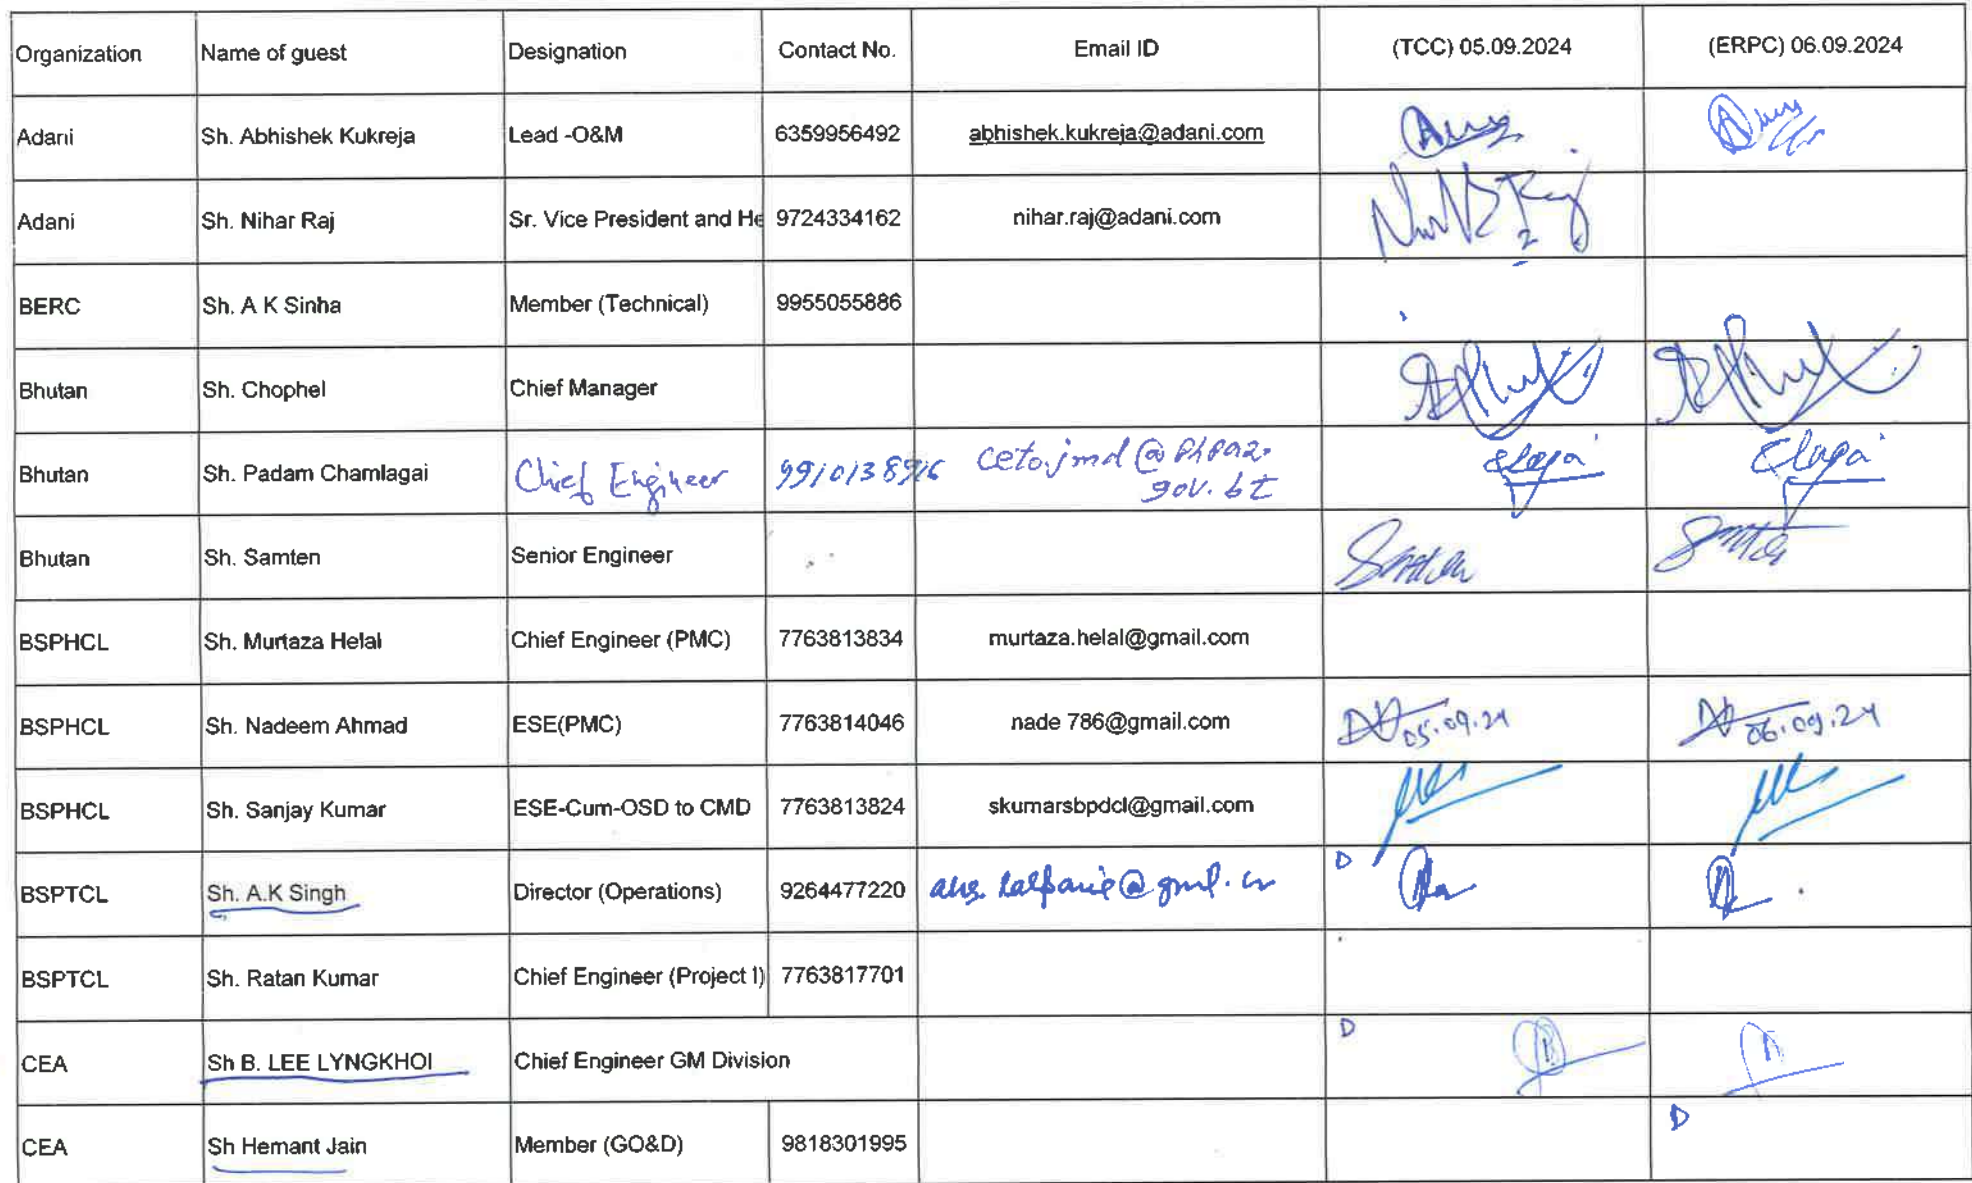 Organization Name of guest Designation Contact No. Email ID (TCC) 05.09.2024 (ERPC) 06.09.2024
Adani Sh. Abhishek Kukreja Lead -O&M 6359956492 abhishek.kukreja@adani.com
Adani Sh. Nihar Raj Sr. Vice President and He 9724334162 nihar.raj@adani.com
BERC Sh. A K Sinha Member (Technical) 9955055886
Bhutan Sh. Chophel Chief Manager
Bhutan Sh. Padam Chamlagai Chief Engineer
gov.bt
Bhutan Sh. Samten Senior Engineer
BSPHCL Sh. Murtaza Helal Chief Engineer (PMC) 7763813834 murtaza.helal@gmail.com
BSPHCL Sh. Nadeem Ahmad ESE(PMC) 7763814046 nade 786@gmail.com 05.09.24 06.09.24
BSPHCL Sh. Sanjay Kumar ESE-Cum-OSD to CMD 7763813824 skumarsbpdcl@gmail.com
BSPTCL Sh. A.K Singh Director (Operations) 9264477220 D
BSPTCL Sh. Ratan Kumar Chief Engineer (Project I) 7763817701
CEA Sh B. LEE LYNGKHOI Chief Engineer GM Division D
CEA Sh Hemant Jain Member (GO&D) 9818301995 D